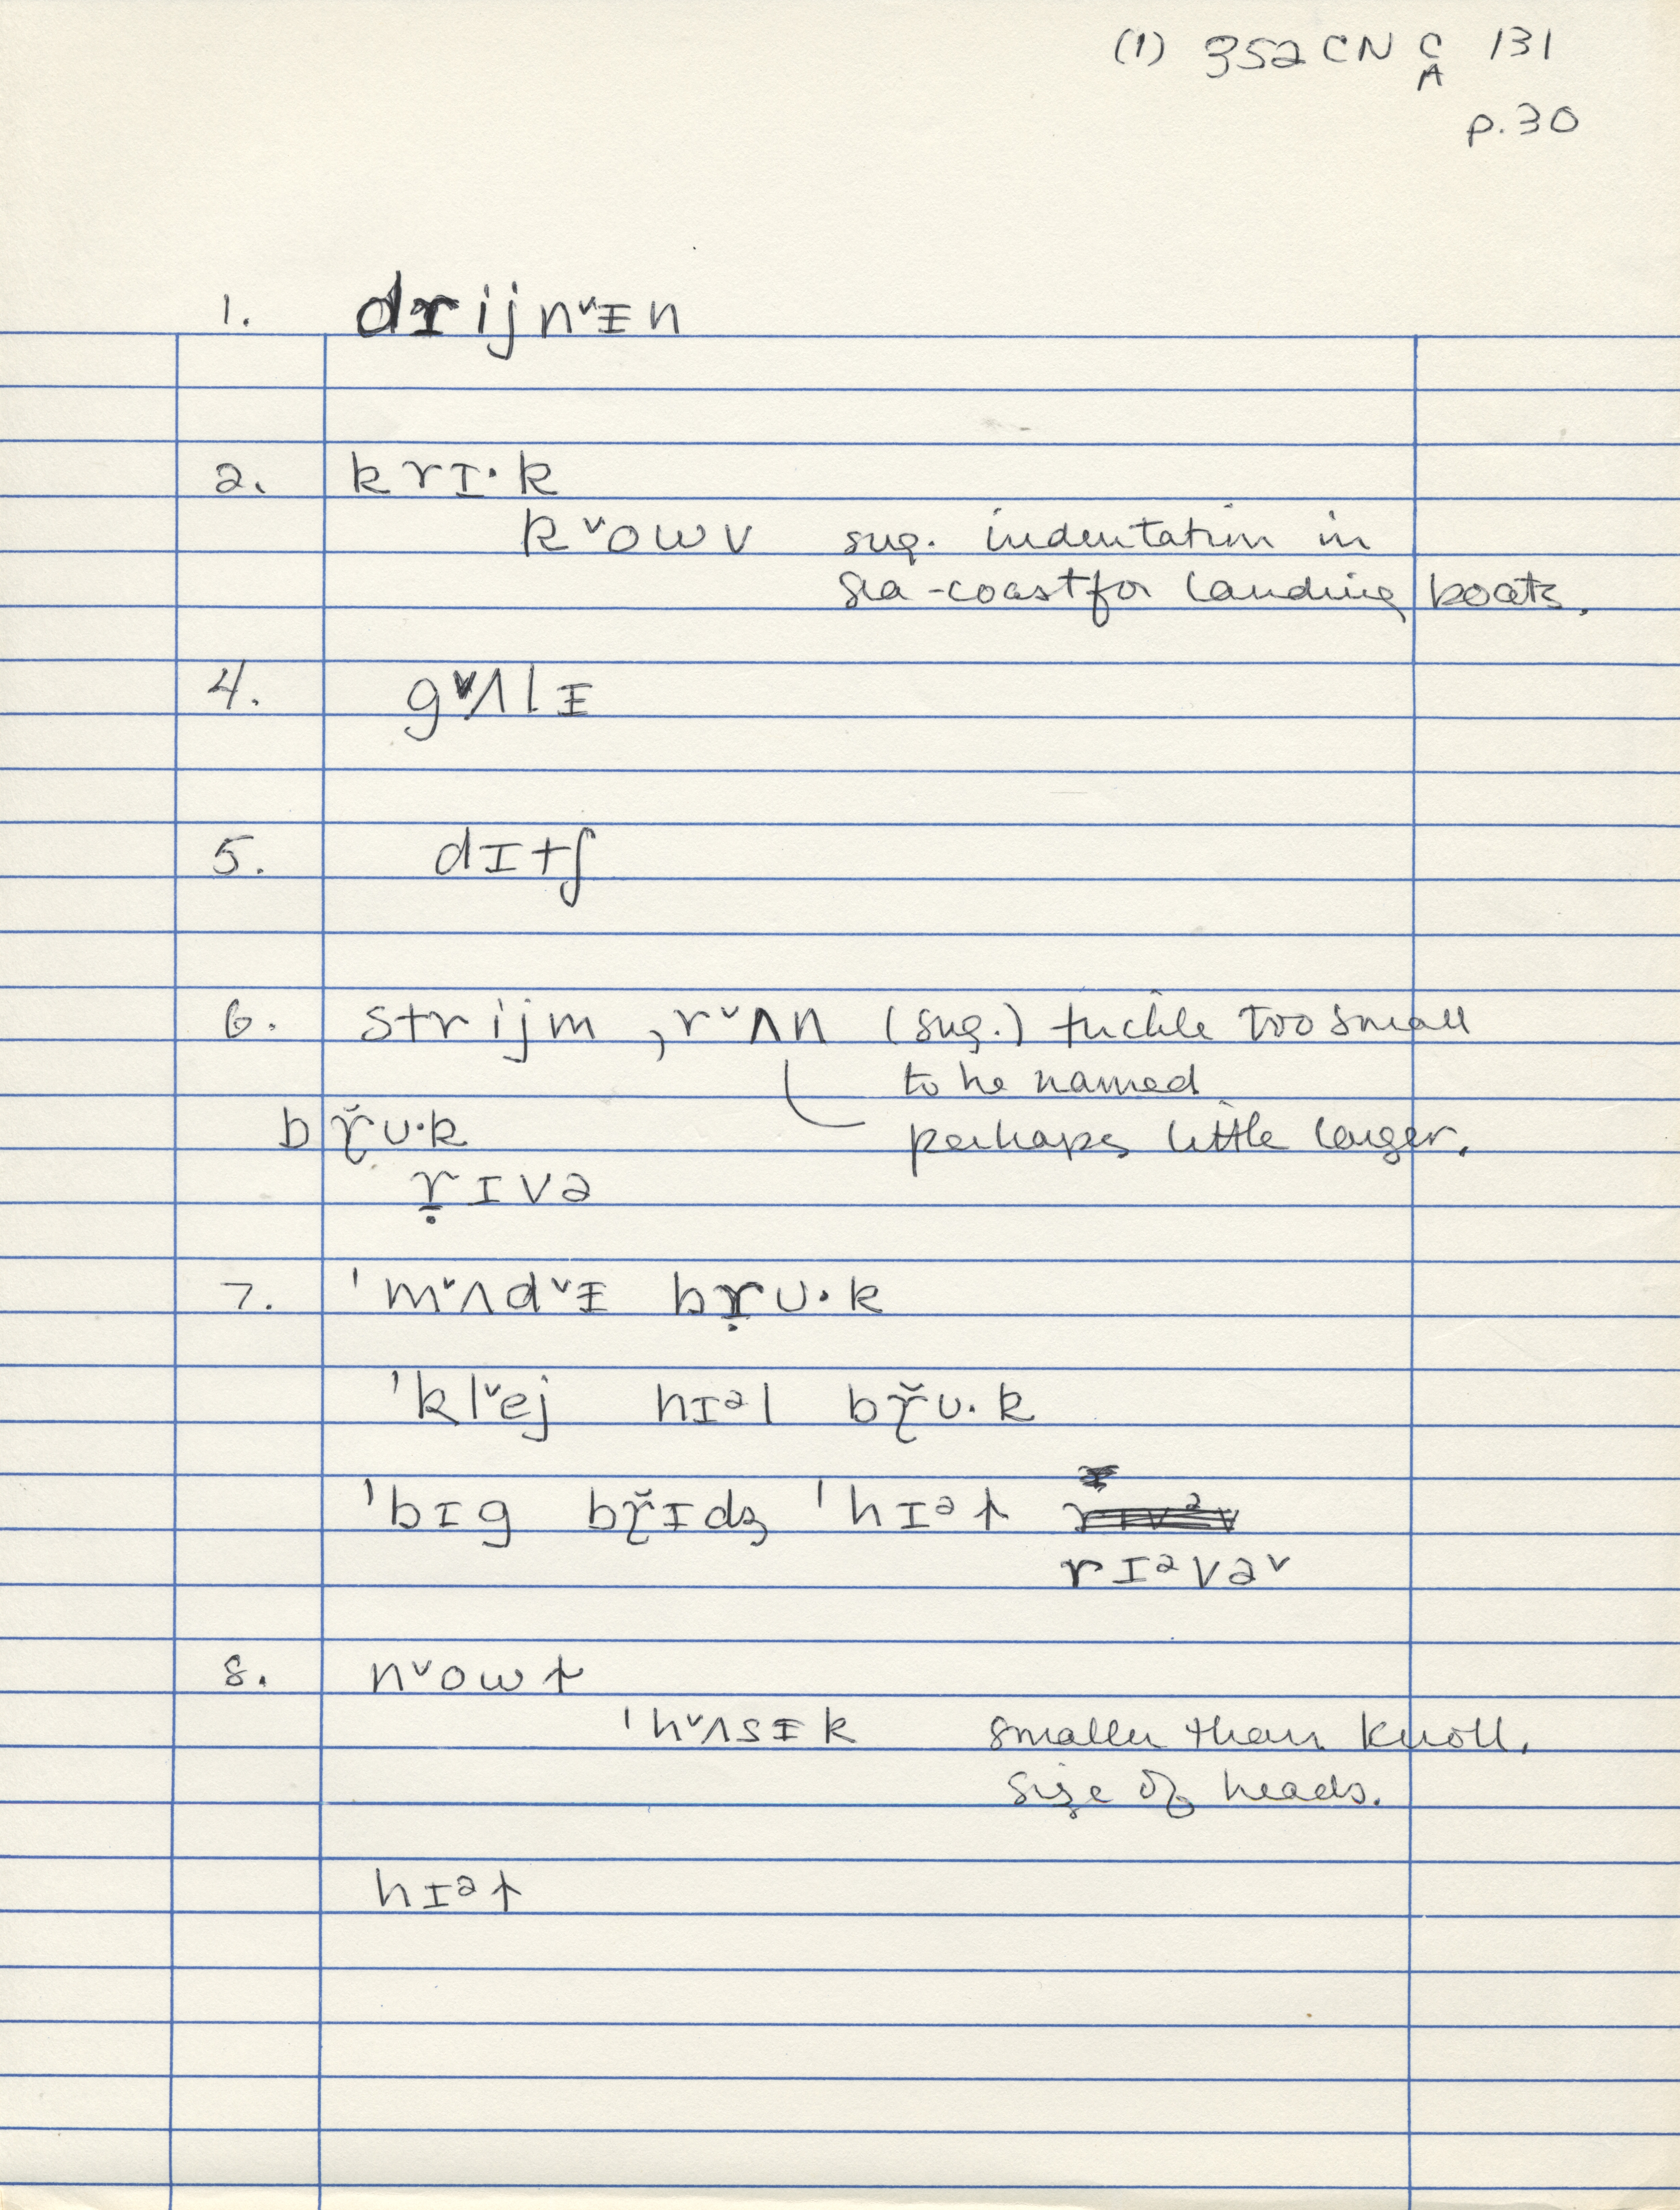 (1) 352 CN C 131
A
p.30
1. drijnˇᵻn
2. krɪ·k
kˇowv sug. indentation in
sea-coast for landing boats.
4. gˇʌlᵻ
5. dɪtʃ
6. strijm , rˇʌn (sug.) trickle too small
to be named
perhaps little larger.
bɽ̆ʊ·k
ṛ̱ɪvə
7. ˈmˇʌdˇᵻ bṛʊ·k
ˈklˇej hɪᵊl bɽ̆ʊ·k
ˈbɪg bɽ̆ɪdʒ ˈhɪᵊɫ
rɪᵊvəˇ
8. nˇowɫ
ˈhˇʌsᵻk smaller than knoll.
size of heads.
hɪᵊɫ